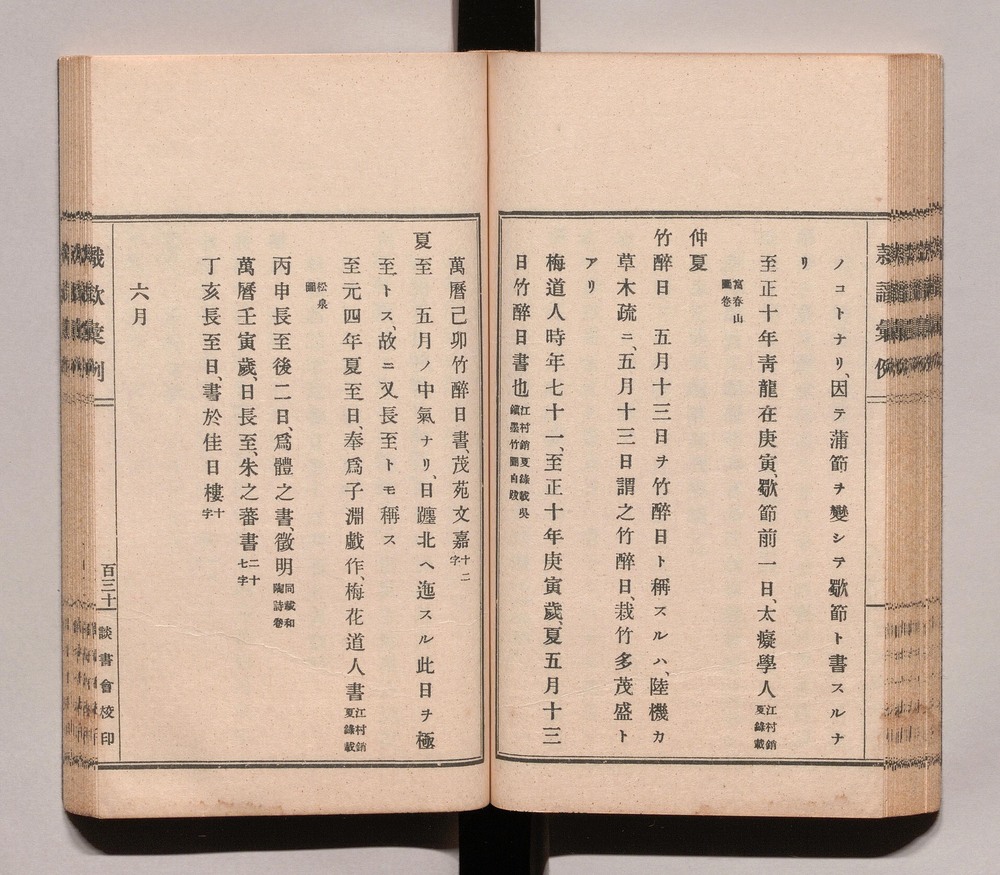 ノコトナリ、因テ蒲節ヲ變シテ歜節ト書スルナ
リ
至正十年靑龍在庚寅、歜節前一日、太癡學人江村銷夏錄載
富春山圖卷
仲夏
竹醉日　五月十三日ヲ竹醉日ト稱スルハ、陸機カ
草木疏ニ、五月十三日謂之竹醉日、栽竹多茂盛ト
アリ
梅道人時年七十一、至正十年庚寅歲、夏五月十三
日竹醉日書也江村銷夏錄載吳鎭墨竹圖自跋
萬曆己卯竹醉日書、茂苑文嘉十二字
夏至　五月ノ中氣ナリ、日躔北ヘ迤スル此日ヲ極
至トス、故ニ又長至トモ稱ス
至元四年夏至日、奉爲子淵戲作、梅花道人書江村銷夏錄載
松泉圖
丙申長至後二日、爲體之書、徵明同載和陶詩卷
萬曆壬寅歲、日長至、朱之蕃書二十七字
丁亥長至日、書於佳日樓十字
六月
款彙例
百三十
談書會校印